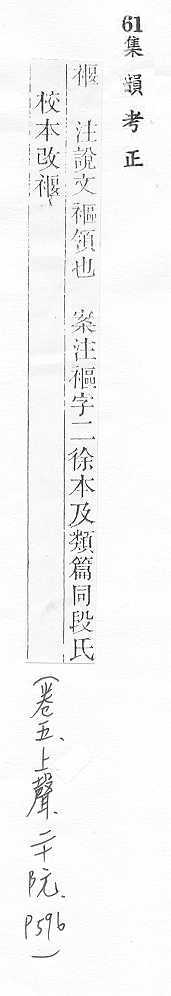 61集韻考正
褗 注說文䙔領也 案注䙔字二徐本及類篇同段氏
校本改褗
(卷五、上聲、二十阮、P596)